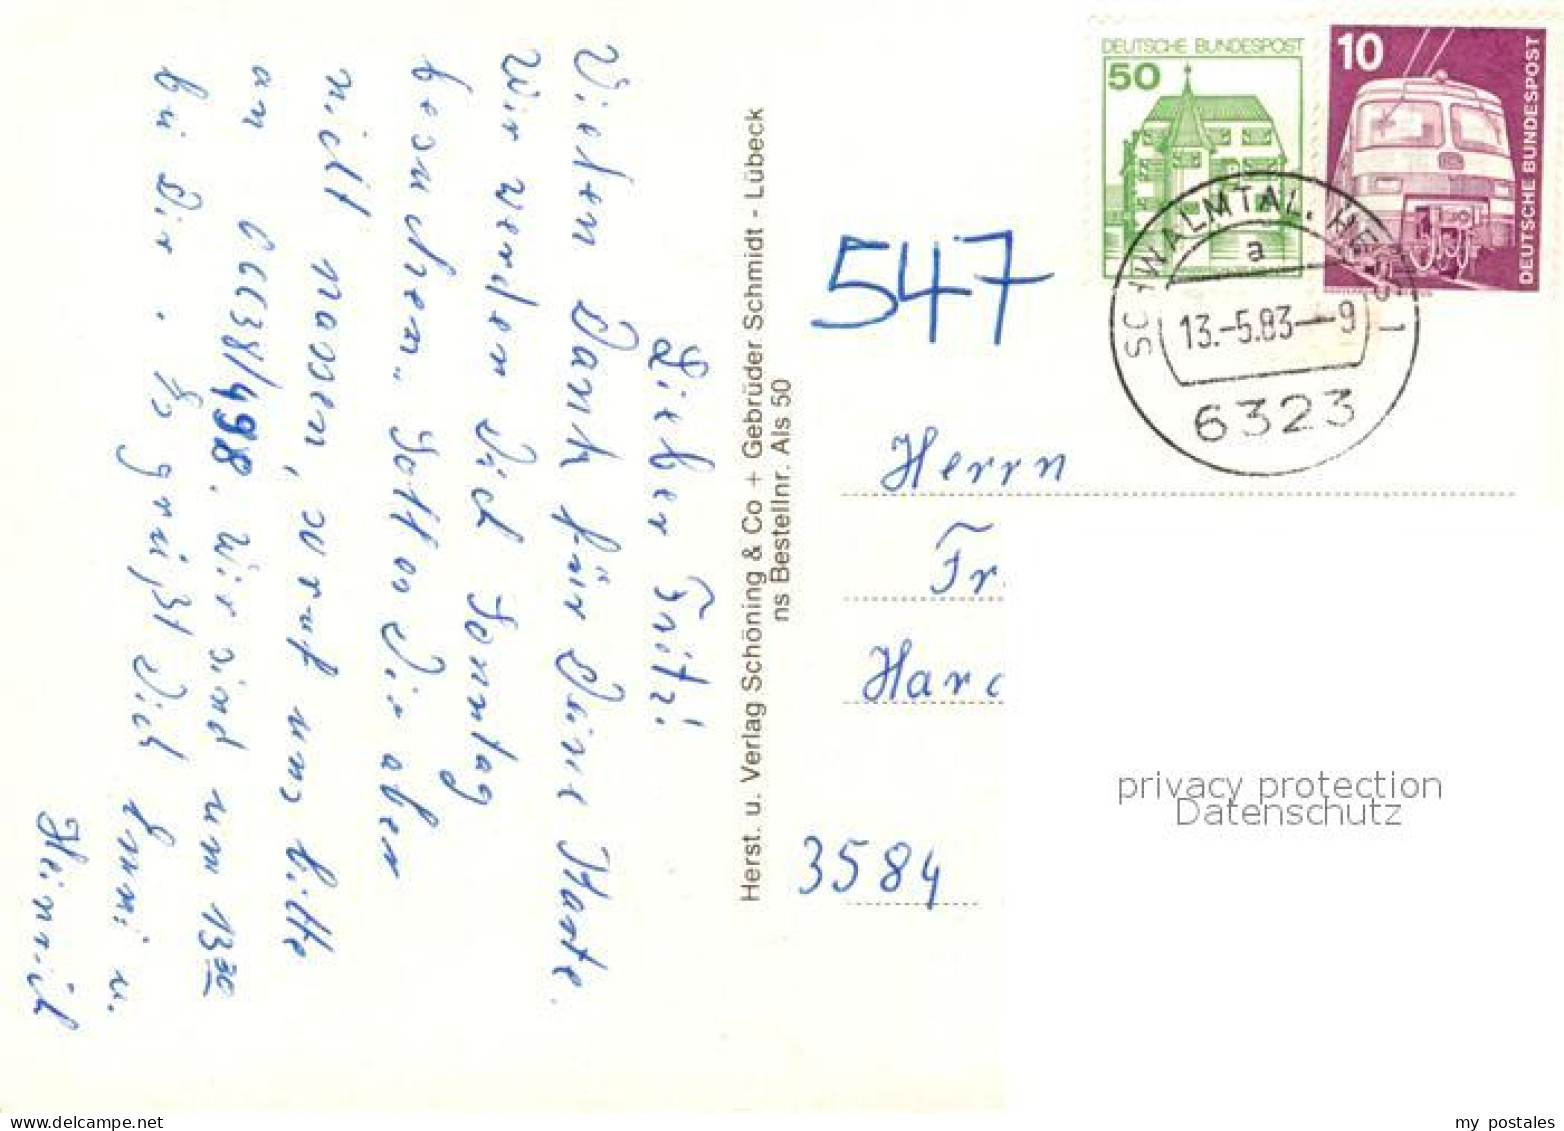 Lieber Fritz!
Vielen Dank für Deine Karte.
Wir werden Dich Sonntag
besuchen. Sollten Dir aber
nicht passen, so ruf uns bitte
an 06638/498. Wir sind um 13³⁰
bei Dir. Es grüßt Dich Emmi u.
Heinrich
Herst. u. Verlag Schöning & Co + Gebrüder Schmidt - Lübeck
ns Bestellnr. Als 50
DEUTSCHE BUNDESPOST
50
10
DEUTSCHE BUNDESPOST
SCHWALMTAL, HESS 1
a
13.-5.83--9
6323
547
Herrn
Fr.
Har
3584
privacy protection
Datenschutz
my postales